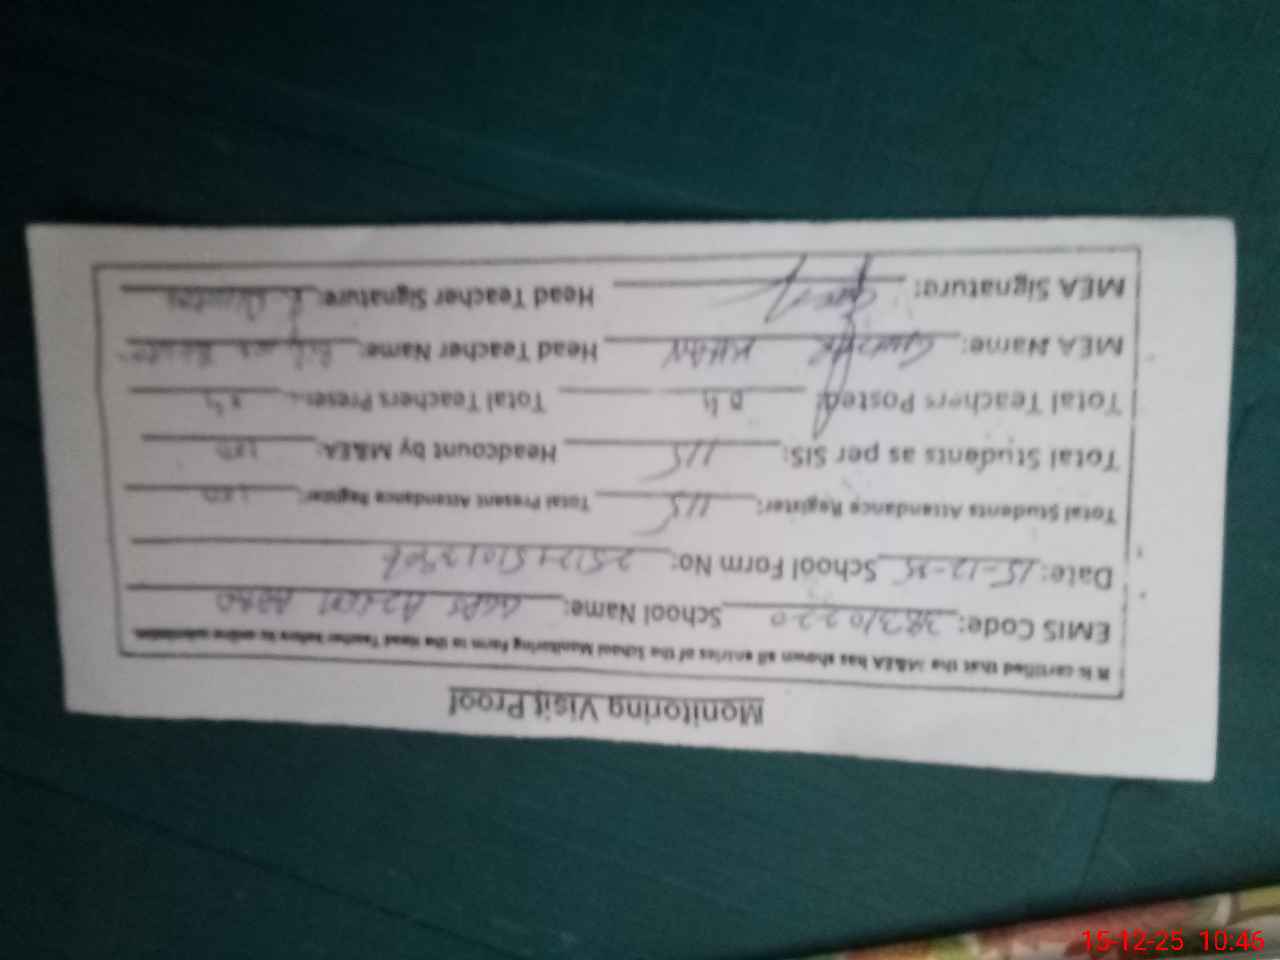 Monitoring Visit Proof
It is certified that the M&EA has shown all entries of the School Monitoring Form to the Head Teacher before its online submission.
EMIS Code: 38310220 School Name: GGPS
Date: 15-12-25 School Form No:
Total Students Attendance Register: 115 Total Present Attendance Register: 100
Total Students as per SIS: 115 Headcount by M&EA: 100
Total Teachers Posted: 04 Total Teachers Present: 04
MEA Name: KHAN Head Teacher Name:
MEA Signature: Head Teacher Signature:
15-12-25 10:46